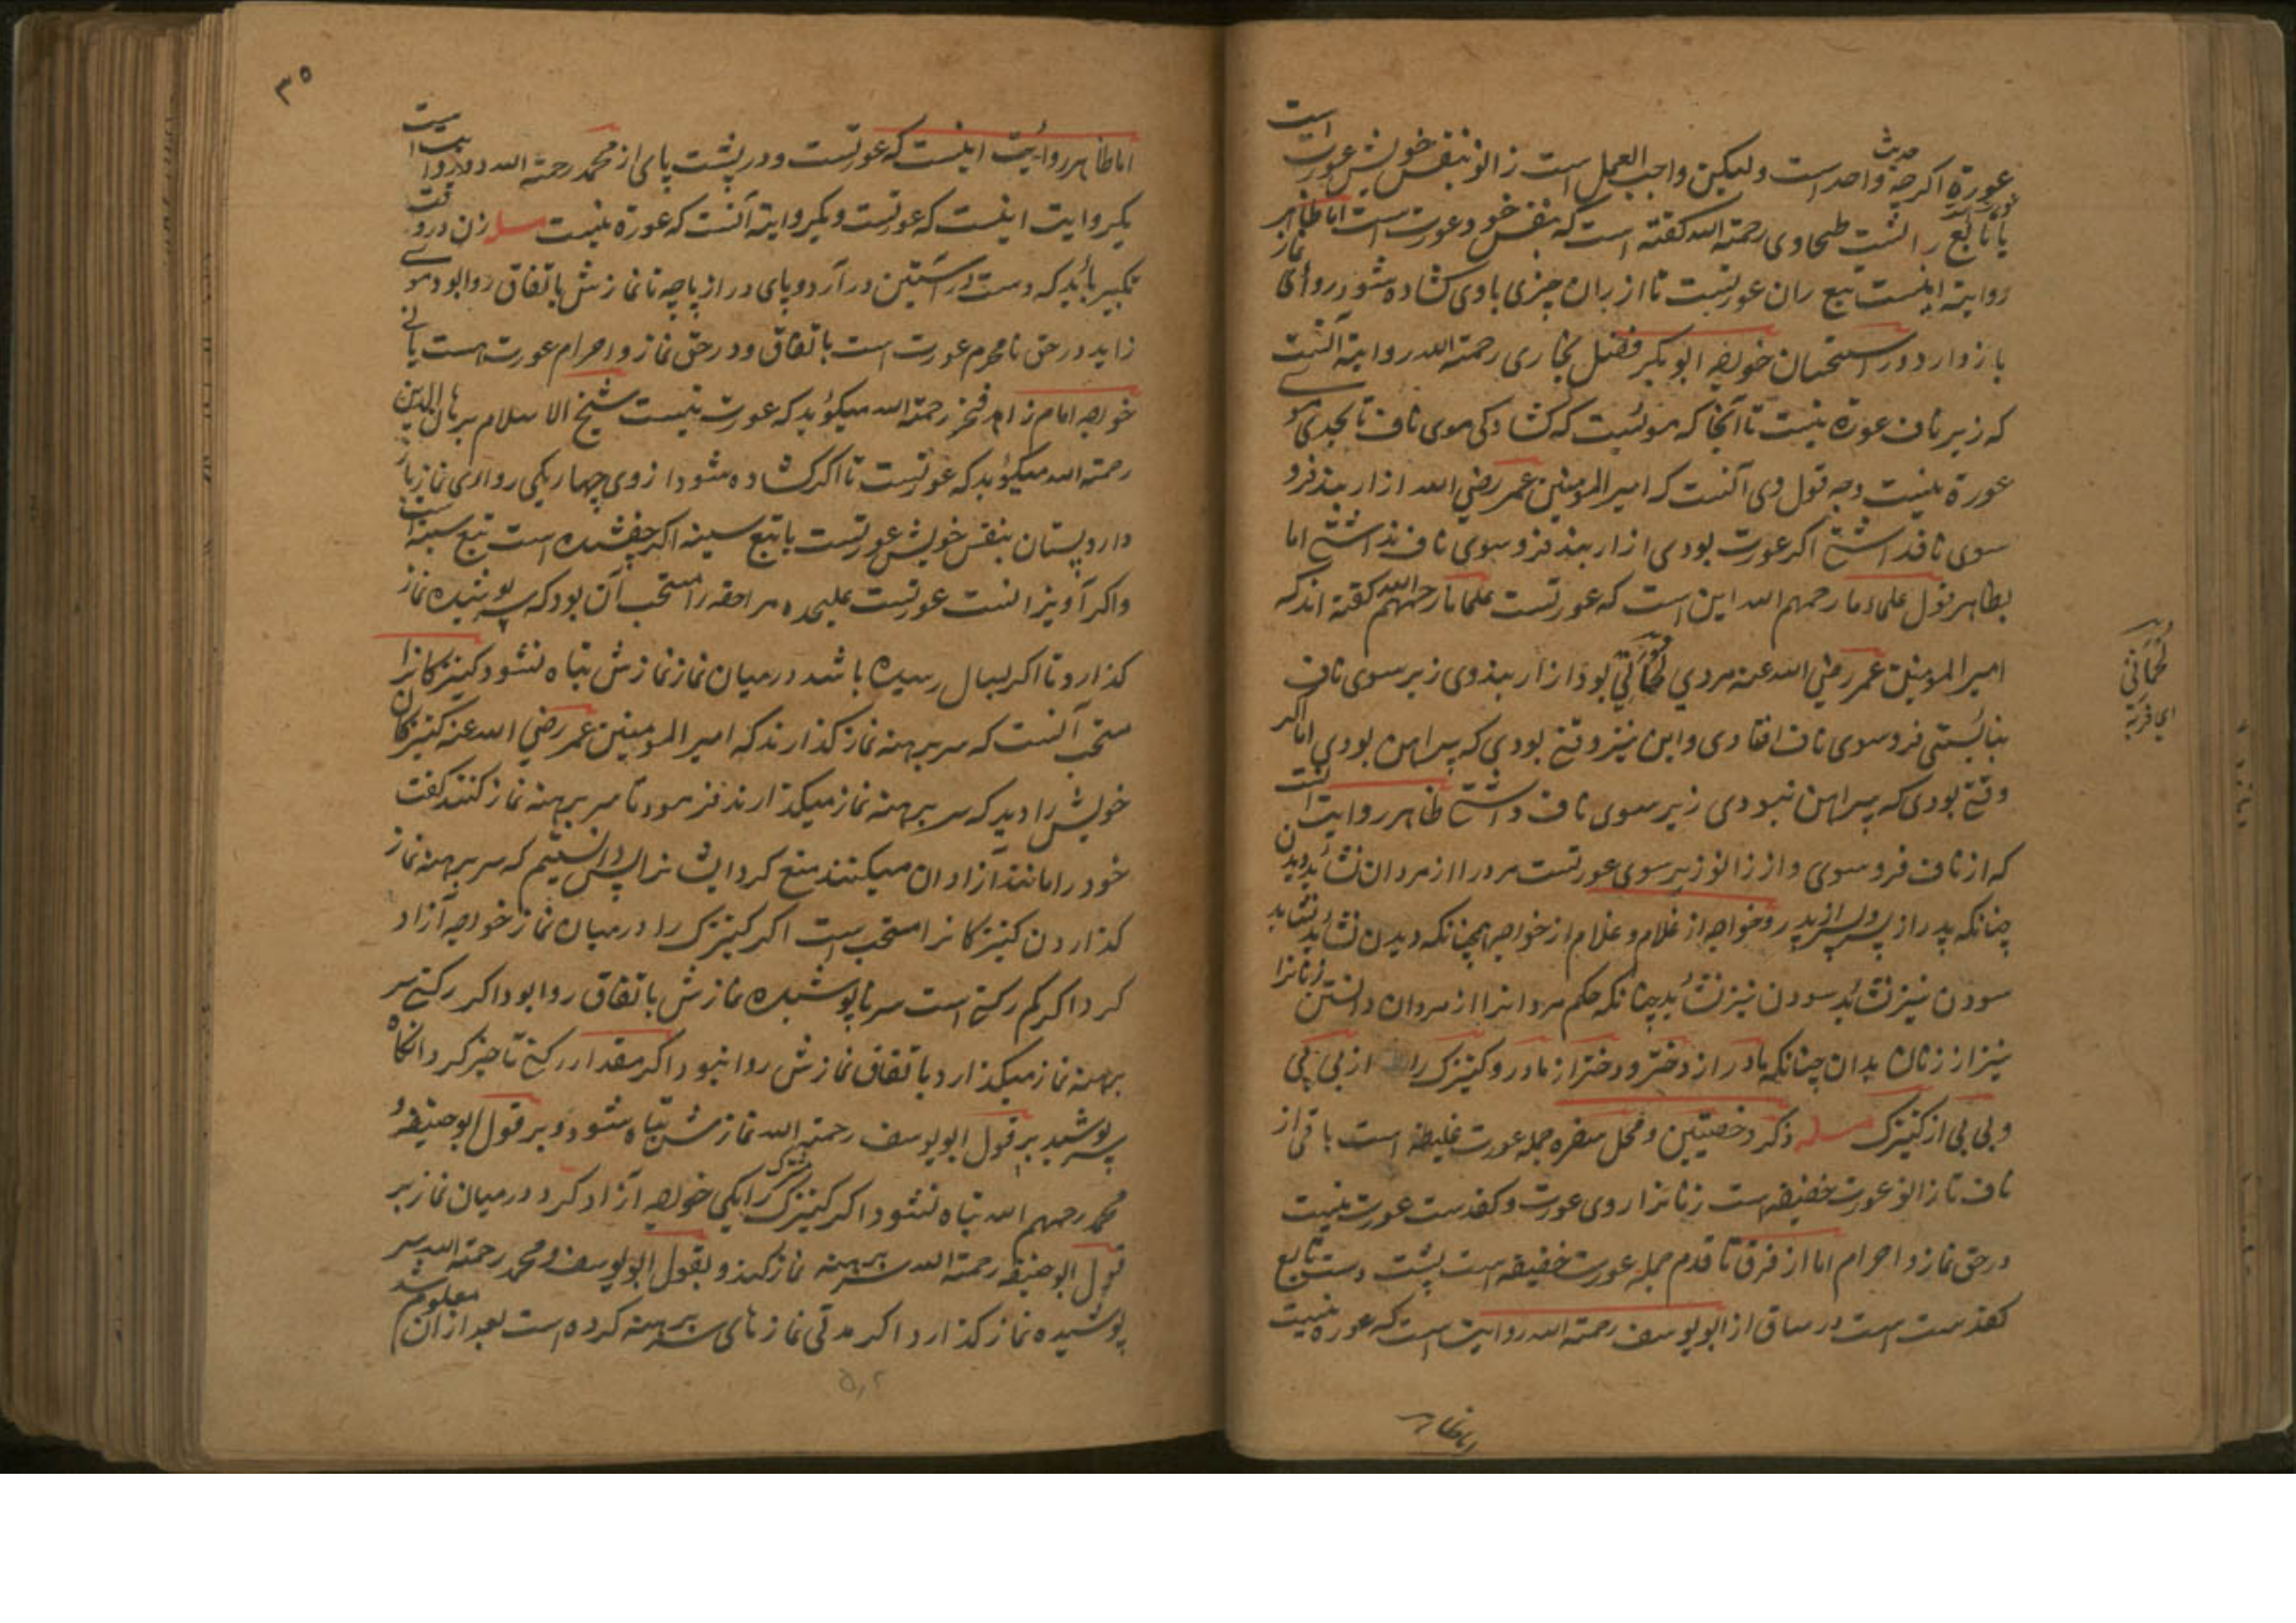 عورة اکرچه حدیث واحد است ولیکن واجب العمل است زانو بنفس خویش عورت است
یا تابع رانست طحاوی رحمة الله کفته است که بنفس خود عورت است اما ظاهر
روایة اینست تبع ران عورتست تا از ران چیزی باوی کشاده شود روای نماز
باز دارد در استحسان خواجه ابوبکر فضل بخاری رحمة الله روایة آنست
که زیر ناف عورة نیست تا آنجا که مویست که کشادکی موی ناف تا بحدی موی
عورة نیست وجه قول وی آنست که امیر المومنین عمر رضی الله ازار بند فرو
سوی ناف داشتی اکر عورت بودی ازار بند فرو سوی ناف نداشتی اما
بظاهر قول علماء ما رحمهم الله این است که عورتست علما ما رحمهم الله کفته اند که
امیر المومنین عمر رضی الله عنه مردی لحمانی بود ازار بند وی زیر سوی ناف
نبایستی فرو سوی ناف افتادی و این نیز وقتی بودی که پیراهن بودی اما اکر
وقتی بودی که پیراهن نبودی زیر سوی ناف داشتی ظاهر روایت آنست
که از ناف فرو سوی و از زانو زیر سوی عورتست مرد را از مردان نشاید دیدن
چنانکه پدر از پسر و پسر از پدر و خواجه از غلام و غلام از خواجه همچنانکه دیدن نشاید
سودن نیز نشاید چنانکه حکم مردانرا از مردان دانستی زنانرا
نیز از زنان بدان چنانکه مادر از دختر و دختر از مادر و کنیزک را از بی بی
و بی بی از کنیزک مسله ذکر و خصیتین و محل سفره جمله عورت غلیظه است باقی از
ناف تا زانو عورت خفیفه است زنانرا روی عورت و کفدست عورت نیست
در حق نماز و احرام اما از فرق تا قدم جمله عورت خفیفه است پشت دست تابع
کفدست است در ساق از ابو یوسف رحمة الله روایت است که عوره نیست
اما ظاهر
لحمانی
ای فربه
۳۵
اما ظاهر روایت اینست که عورتست و در پشت پای از محمد رحمة الله دو روایت است
یکروایت اینست که عورتست و یکروایة آنست که عورة نیست مسله زن در وقت
تکبیر باید که دست در آستین در آرد و پای دراز پاچه تا نمازش باتفاق روا بود موی
زاید در حق نامحرم عورت است باتفاق و در حق نماز و احرام عورت است یا نی
خواجه امام زاهد فخر رحمة الله میکوید که عورت نیست شیخ الاسلام برهان الدین
رحمة الله میکوید که عورتست تا اکر کشاده شود از وی چهاریکی روای نماز باز
دارد پستان بنفس خویش عورتست یا تبع سینه اکر چفشیده است تبع سینه است
و اکر آویزانست عورتست علیحده مراحقه را مستحب آن بود که سر پوشیده نماز
کذارد تا اکر بسال رسیده باشد در میان نماز نمازش تباه نشود کنیزکانرا
مستحب آنست که سر برهنه نماز کذارند که امیر المومنین عمر رضی الله عنه کنیزکان
خویش را دید که سر برهنه نماز میکذارند فرمود تا سر برهنه نماز کنند کفت
خود را مانند آزادان میکنند منع کرد ایشانرا پس دانستیم که سر برهنه نماز
کذاردن کنیزکانرا مستحب است اکر کنیزک را در میان نماز خواجه آزاد
کرد اکر کم رکنی است سر ناپوشیده نمازش باتفاق روا بود اکر رکنی سر
برهنه نماز میکذارد باتفاق نمازش روا نبود اکر مقدار رکنی تاخیر کرد آنکاه
سر پوشید بر قول ابو یوسف رحمة الله نمازش تباه شود و بر قول ابو حنیفه و
محمد رحمهم الله تباه نشود اکر کنیزک مشترک را یکی خواجه آزاد کرد در میان نماز بر
قول ابو حنیفه رحمة الله سر برهنه نماز کند و بقول ابو یوسف و محمد رحمة الله سر
پوشیده نماز کذارد اکر مدتی نمازهای سر برهنه کرده است بعد از آن معلوم شد